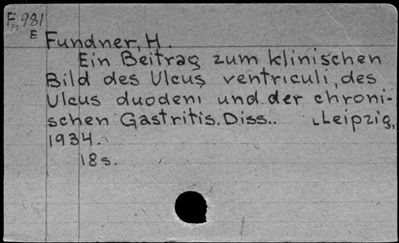 F. 981
E
Fundner, H.
Ein Beitrag zum klinischen
Bild des Ulcus ventriculi, des
Ulcus duodeni und der chroni-
schen Gastritis. Diss.. Leipzig,
1934.
18s.